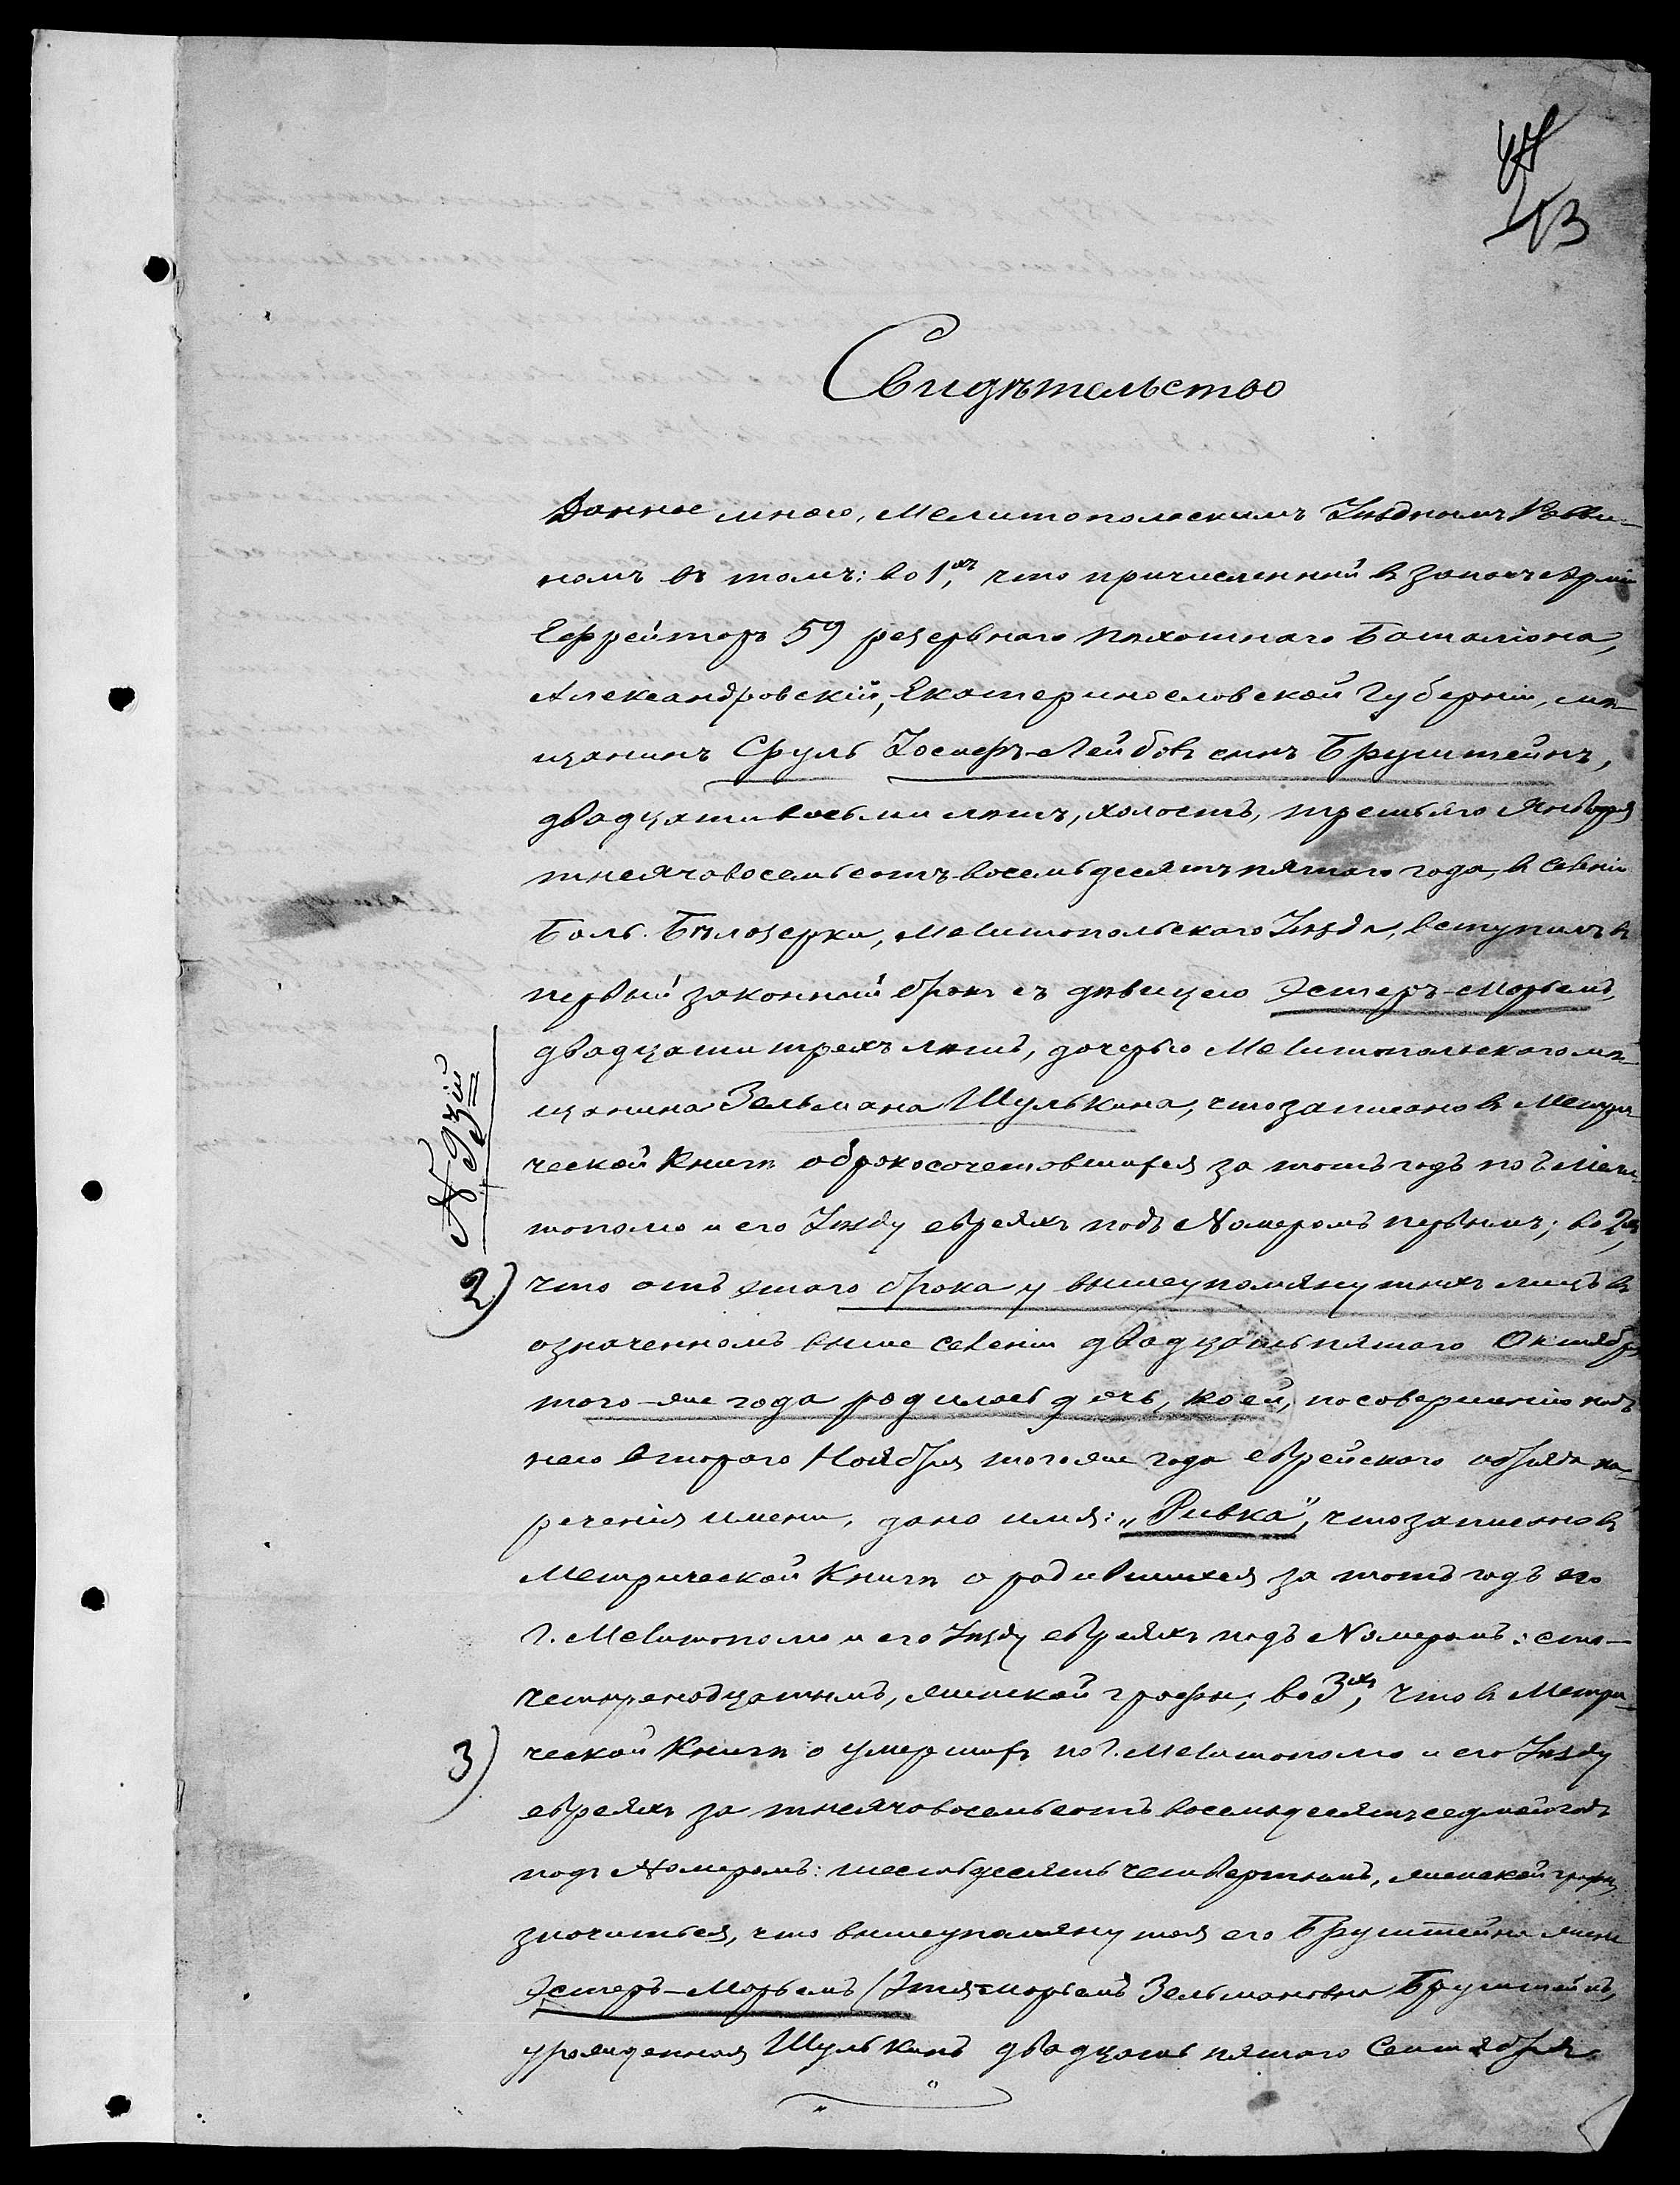 47
43
Свидѣтельство
Данное мною, Мелитопольскимъ Уѣзднымъ Равви-
номъ въ томъ: во 1хъ, что причисленный въ запасъ Арміи
Ефрейторъ 59 резервнаго пѣхотнаго Баталіона,
Александровскій, Екатеринославской Губерніи, мѣ-
щанинъ Сруль Іосифъ-Лейбовъ сынъ Бруштейнъ,
двадцати восьми лѣтъ, холостъ, третьяго Января
тысяча восемьсотъ восемьдесятъ пятаго года, въ Селеніи
Боль. Бѣлозерки, Мелитопольскаго Уѣзда, вступилъ въ
первый законный бракъ съ дѣвицею Эстеръ-Марьемъ,
двадцати трехъ лѣтъ, дочерью Мелитопольскаго мѣ-
щанина Зельмана Шулькина, что записано въ Метри-
ческой Книгѣ о бракосочетавшихся за тотъ годъ по г. Мели-
тополю и его Уѣзду евреяхъ подъ Номеромъ первымъ; во 2хъ,
2) что отъ этого брака у вышеупомянутыхъ лицъ въ
означенномъ выше селеніи двадцать пятаго Октября
того-же года родилась дочь, коей, по совершеніи надъ
нею второго Ноября того же года еврейскаго обряда на-
реченія имени, дано имя: „Ривка“, что записано въ
Метрической Книгѣ о родившихся за тотъ годъ по
г. Мелитополю и его Уѣзду евреяхъ подъ Номеромъ: сто-
четырнадцатымъ, женской графы; во 3хъ, что въ Метри-
3) ческой Книгѣ о умершихъ по г. Мелитополю и его Уѣзду
евреяхъ за тысяча восемьсотъ восемьдесятъ седьмой годъ
подъ Номеромъ: шестьдесятъ четвертымъ, женской графы,
значиться, что вышеупомянутая его Бруштейна жена
Эстеръ-Марьемъ (Этя-Марьемъ Зельмановна Бруштейнъ,
урожденная Шулькинъ двадцать пятаго Сентября